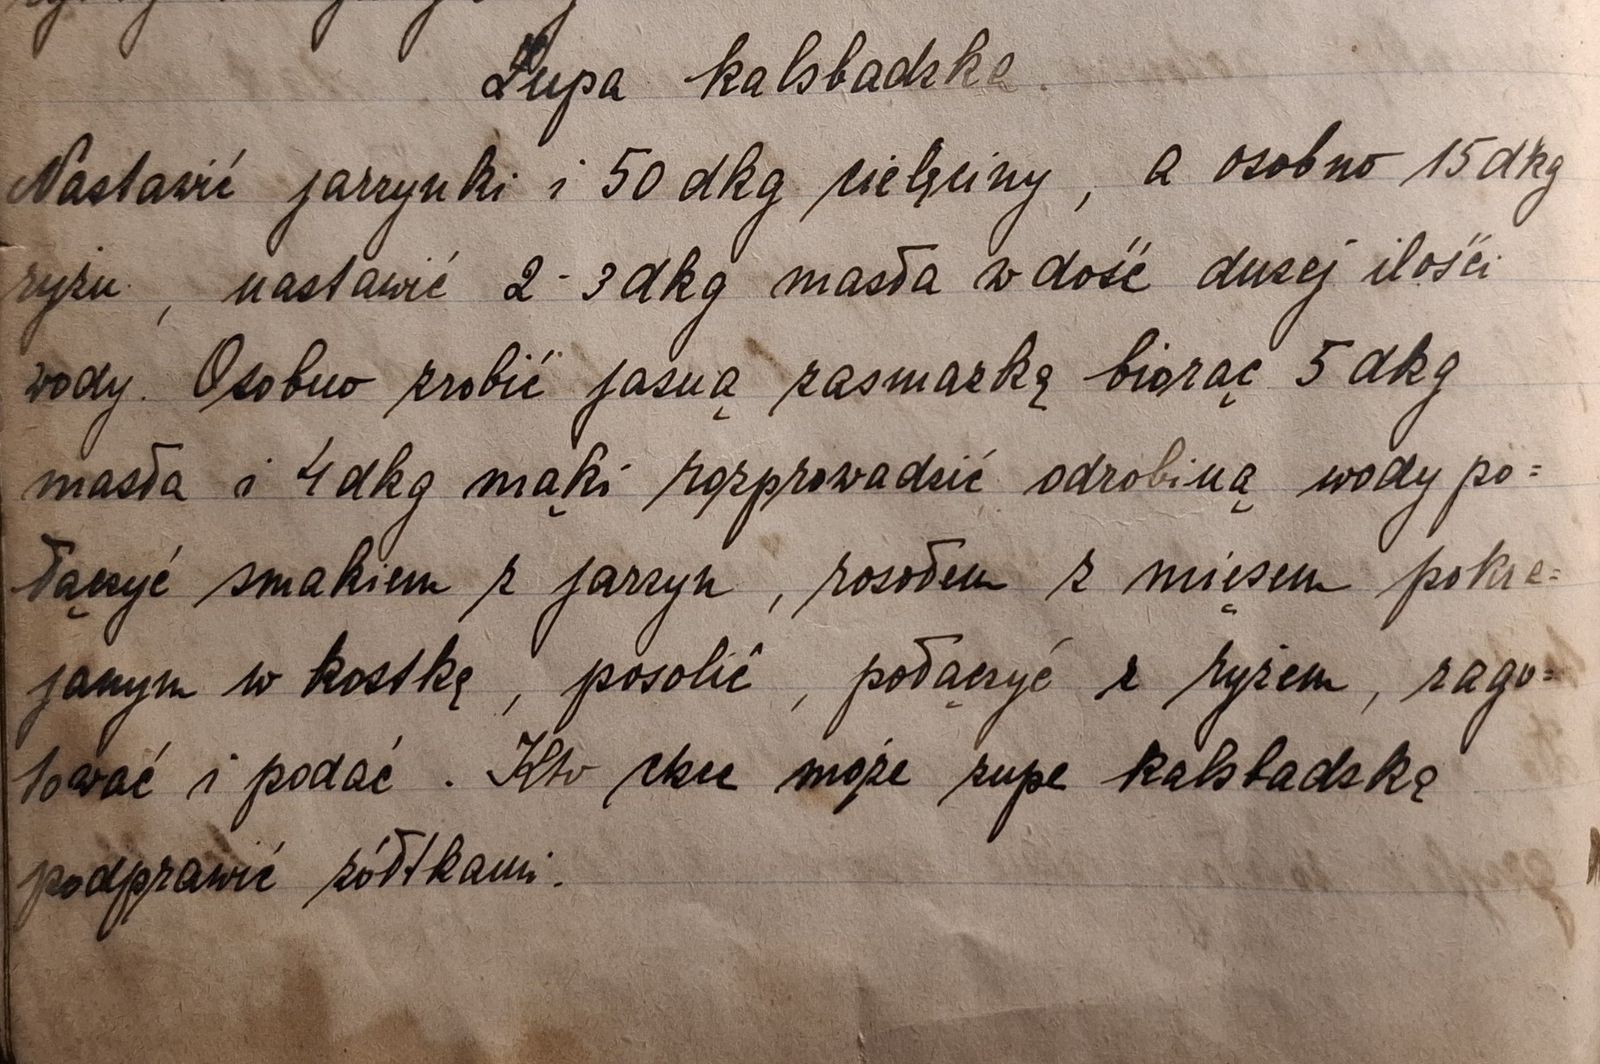 Zupa kalsbadzka.
Nastawić jarzynki i 50 dkg cielęciny, a osobno 15 dkg
ryżu, nastawić 2-3 dkg masła w dość dużej ilości
wody. Osobno zrobić jasną zasmażkę biorąc 5 dkg
masła i 4 dkg mąki rozprowadzić odrobiną wody po=
łączyć smakiem z jarzyn, rosołem z mięsem pokra=
janym w kostkę, posolić, połączyć z ryżem, zago=
tować i podać. Kto chce może zupe kalsbadzką
podprawić żółtkami.